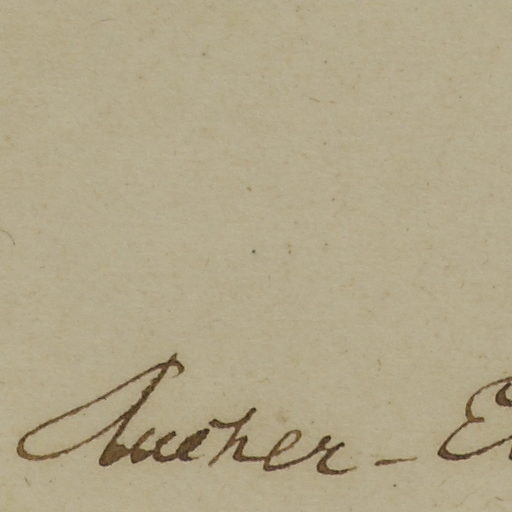 Aucher - E